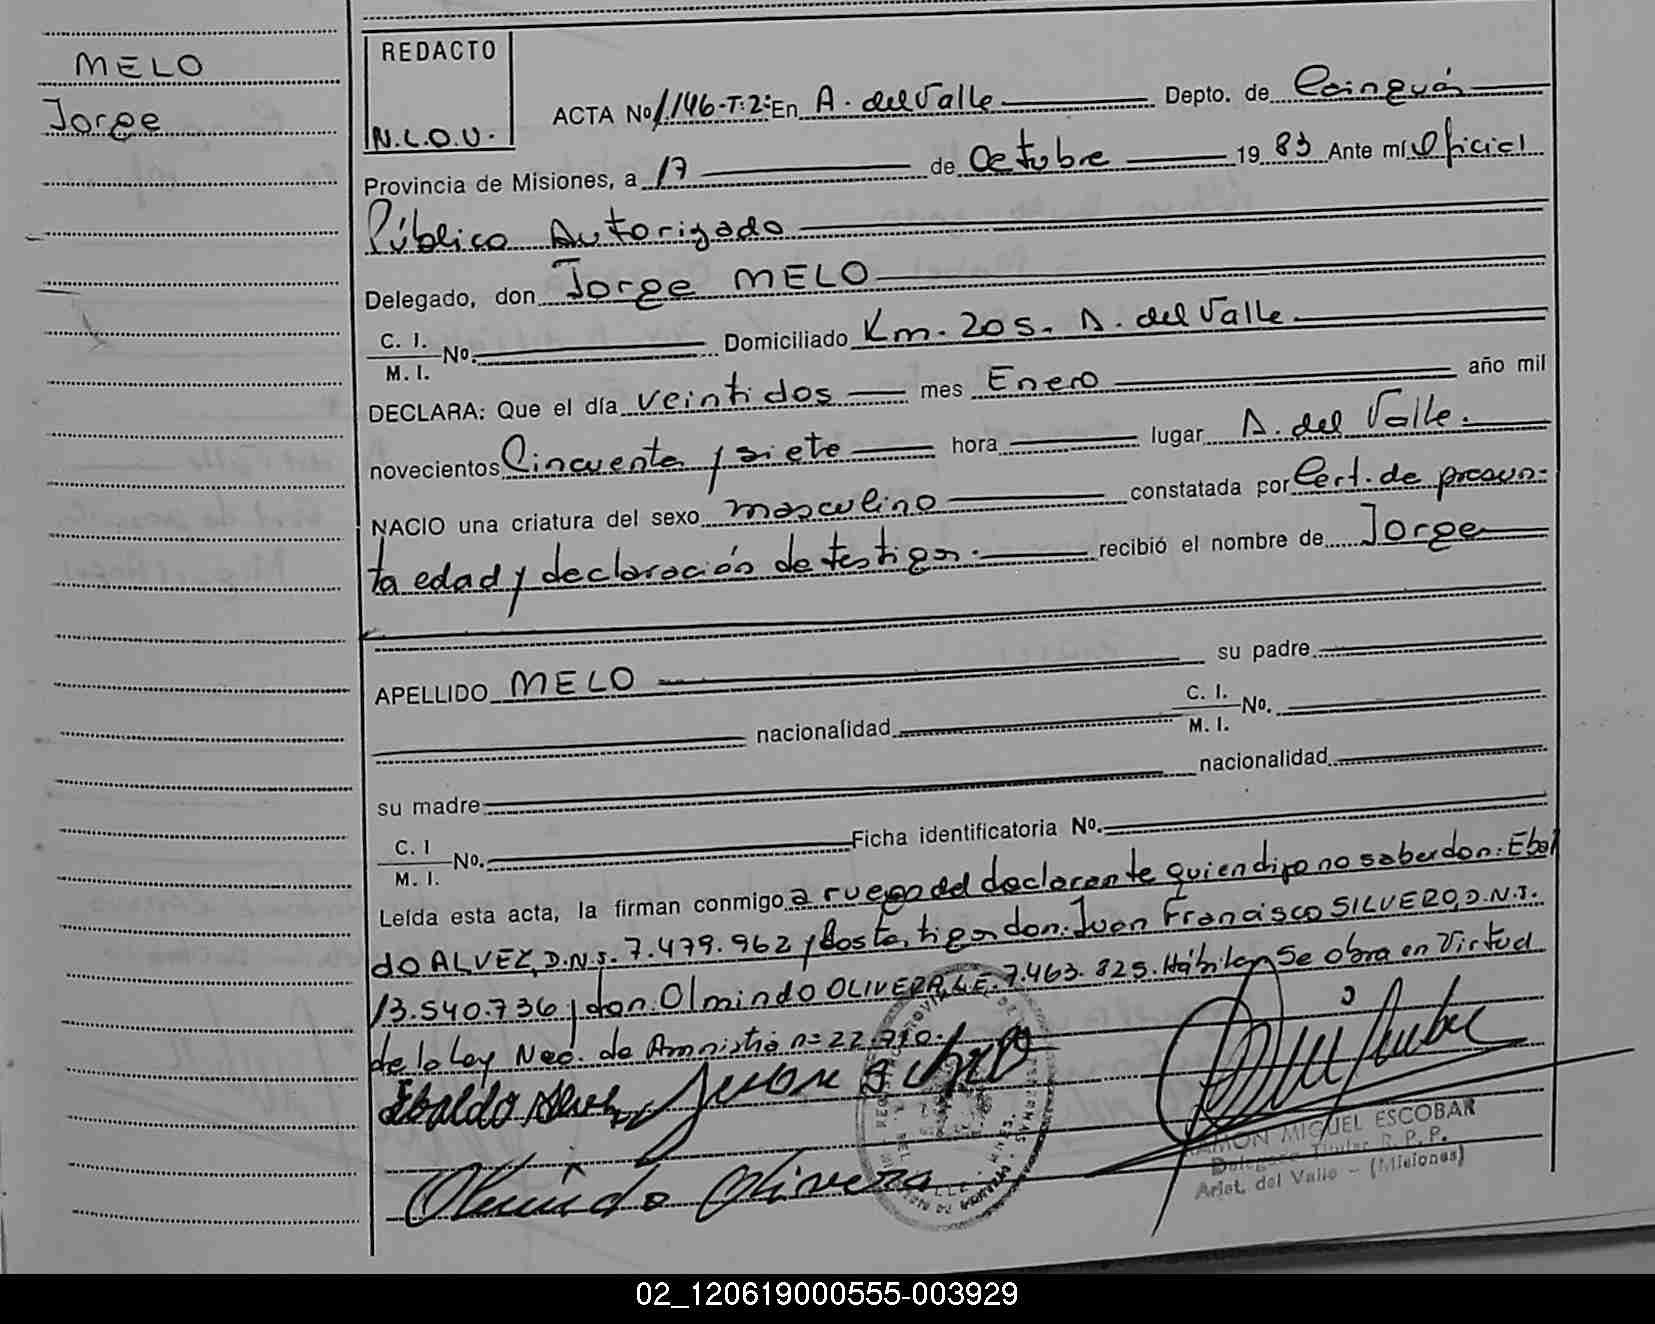 MELO
Jorge
REDACTO
N.L.O.U.
ACTA No 1.146-T:2: En A. del Valle Depto. de Cainguás
Provincia de Misiones, a 17 de Octubre 1983 Ante mí Oficial
Público Autorizado
Delegado, don Jorge MELO
C. I. / M. I. No. Domiciliado Km. 205. A. del Valle.
DECLARA: Que el día veintidos mes Enero año mil
novecientos Cincuenta y siete hora lugar A. del Valle.
NACIO una criatura del sexo masculino constatada por Cert. de presun=
ta edad y declaración de testigos. recibió el nombre de Jorge
APELLIDO MELO su padre
nacionalidad C. I. / M. I. No.
su madre nacionalidad
C. I / M. I. No. Ficha identificatoria No.
Leída esta acta, la firman conmigo a ruego del declarante quien dijo no saber don: Ebal
do ALVEZ, D.N.I. 7.479.962 y los testigos don: Juan Francisco SILVERO, D.N.I.
13.540.736 y don: Olmindo OLIVERA, L.E. 7.463.825. Hábiles Se obra en Virtud
de la Ley Nac. de Amnistía n= 22.
Ebaldo Alvez
Olmindo Olivera
RAMON MIGUEL ESCOBAR
Delegado Titular R. P. P.
Arist. del Valle - (Misiones)
02_120619000555-003929